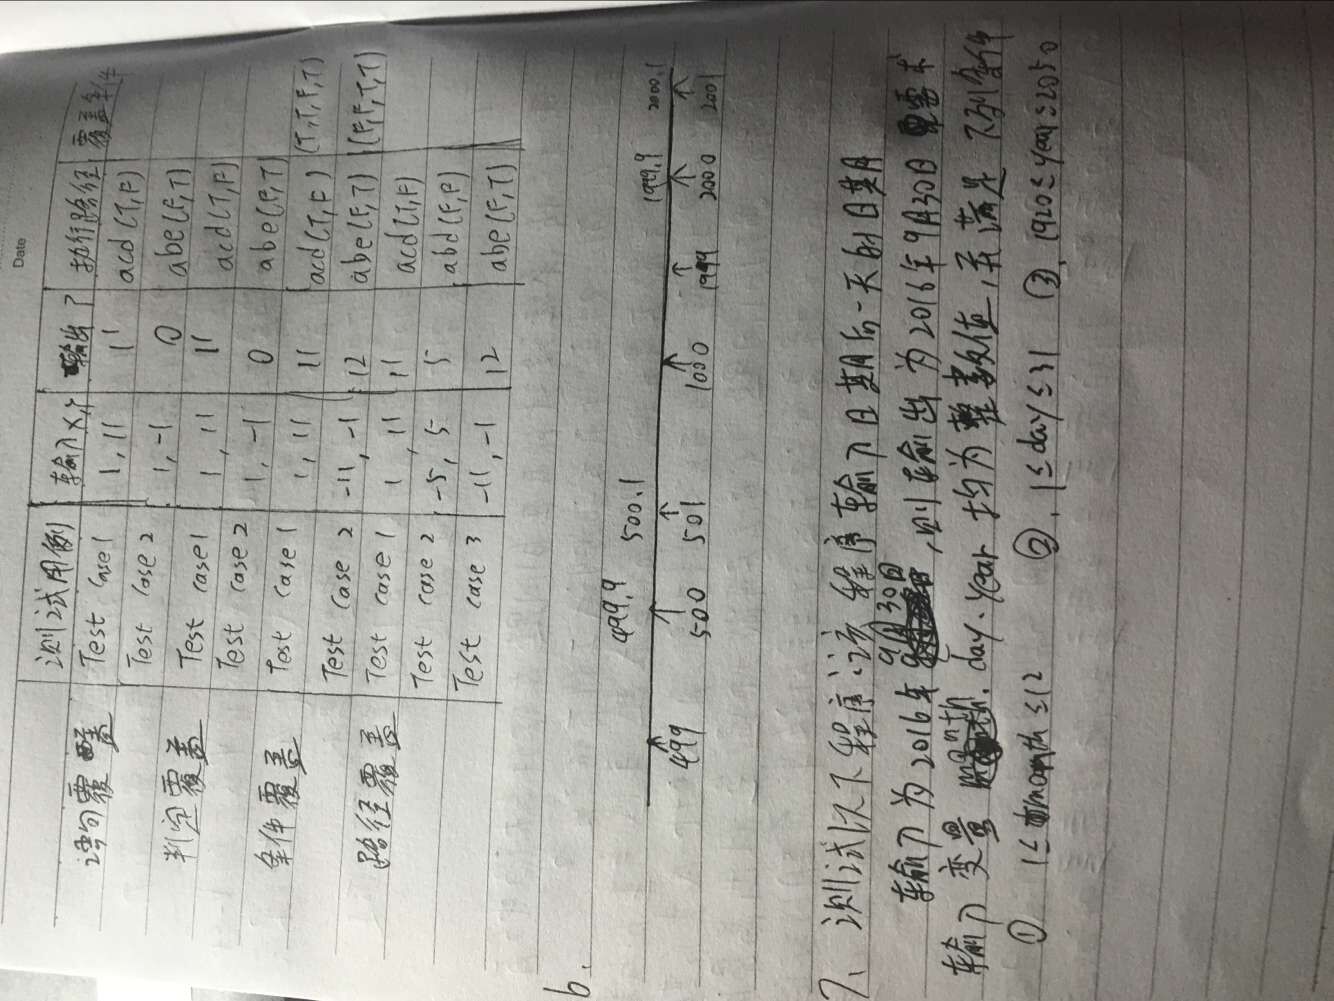 Date
测试用例 输入x,y 输出了 执行路径 覆盖条件
语句覆盖 Test case1 1,11 11 acd(T,F)
Test case 2 1,-1 0 abe(F,T)
判定覆盖 Test case1 1,11 11 acd(T,F)
Test case 2 1,-1 0 abe(F,T)
条件覆盖 Test case 1 1,11 11 acd(T,F) (T,T,F,T)
Test case 2 -11,-1 12 abe(F,T) (F,F,T,T)
路径覆盖 Test case 1 1,11 11 acd(T,F)
Test case 2 -5,5 5 abd(F,F)
Test case 3 -11,-1 12 abe(F,T)
6.
499.9 500.1 1999.9 2000.1
499 500 501 1000 1999 2000 2001
7、测试以下程序:该程序输入日期后一天的日期
输入为2016年9月30日,则输出为2016年9月30日 要求
输入变量month.day.year均为整数值,并满足下列条件
① 1≤month≤12 ②.1≤day≤31 ③.1920≤year≤2050